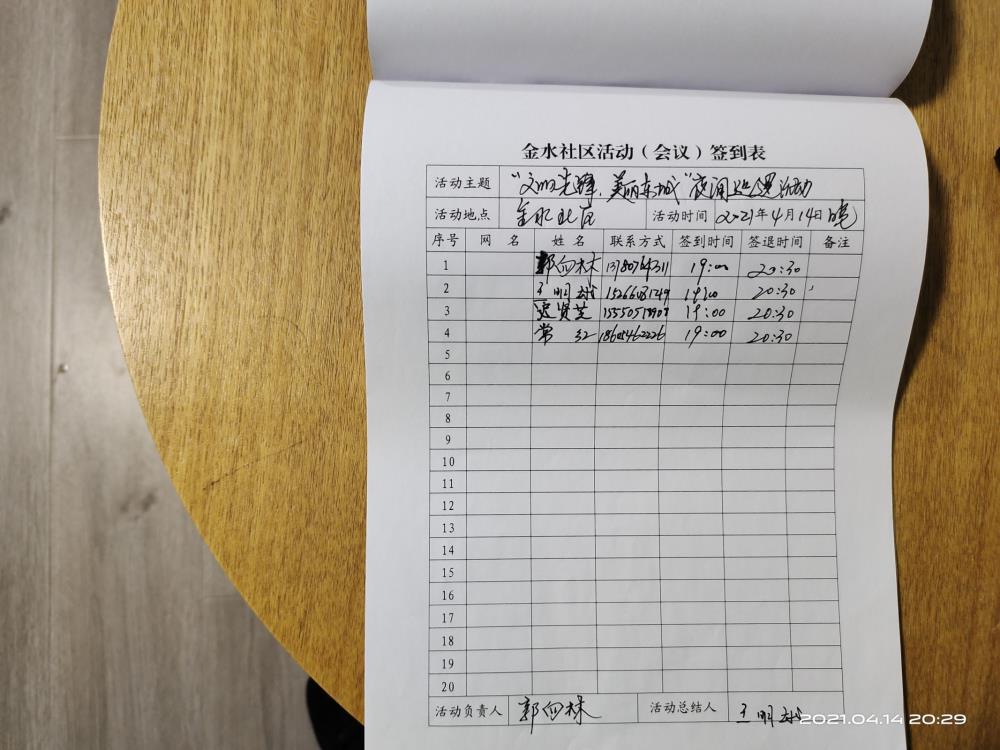 金水社区活动（会议）签到表
活动主题 "文明先锋、美丽东城"夜间巡逻活动
活动地点 金水社区 活动时间 2021年4月14日晚
序号 网名 姓名 联系方式 签到时间 签退时间 备注
1 郭向林 19:00 20:30
2 王明 19:00 20:30
3 贤芝 19:00 20:30
4 常 19:00 20:30
5
6
7
8
9
10
11
12
13
14
15
16
17
18
19
20
活动负责人 郭向林 活动总结人 王明
2021.04.14 20:29